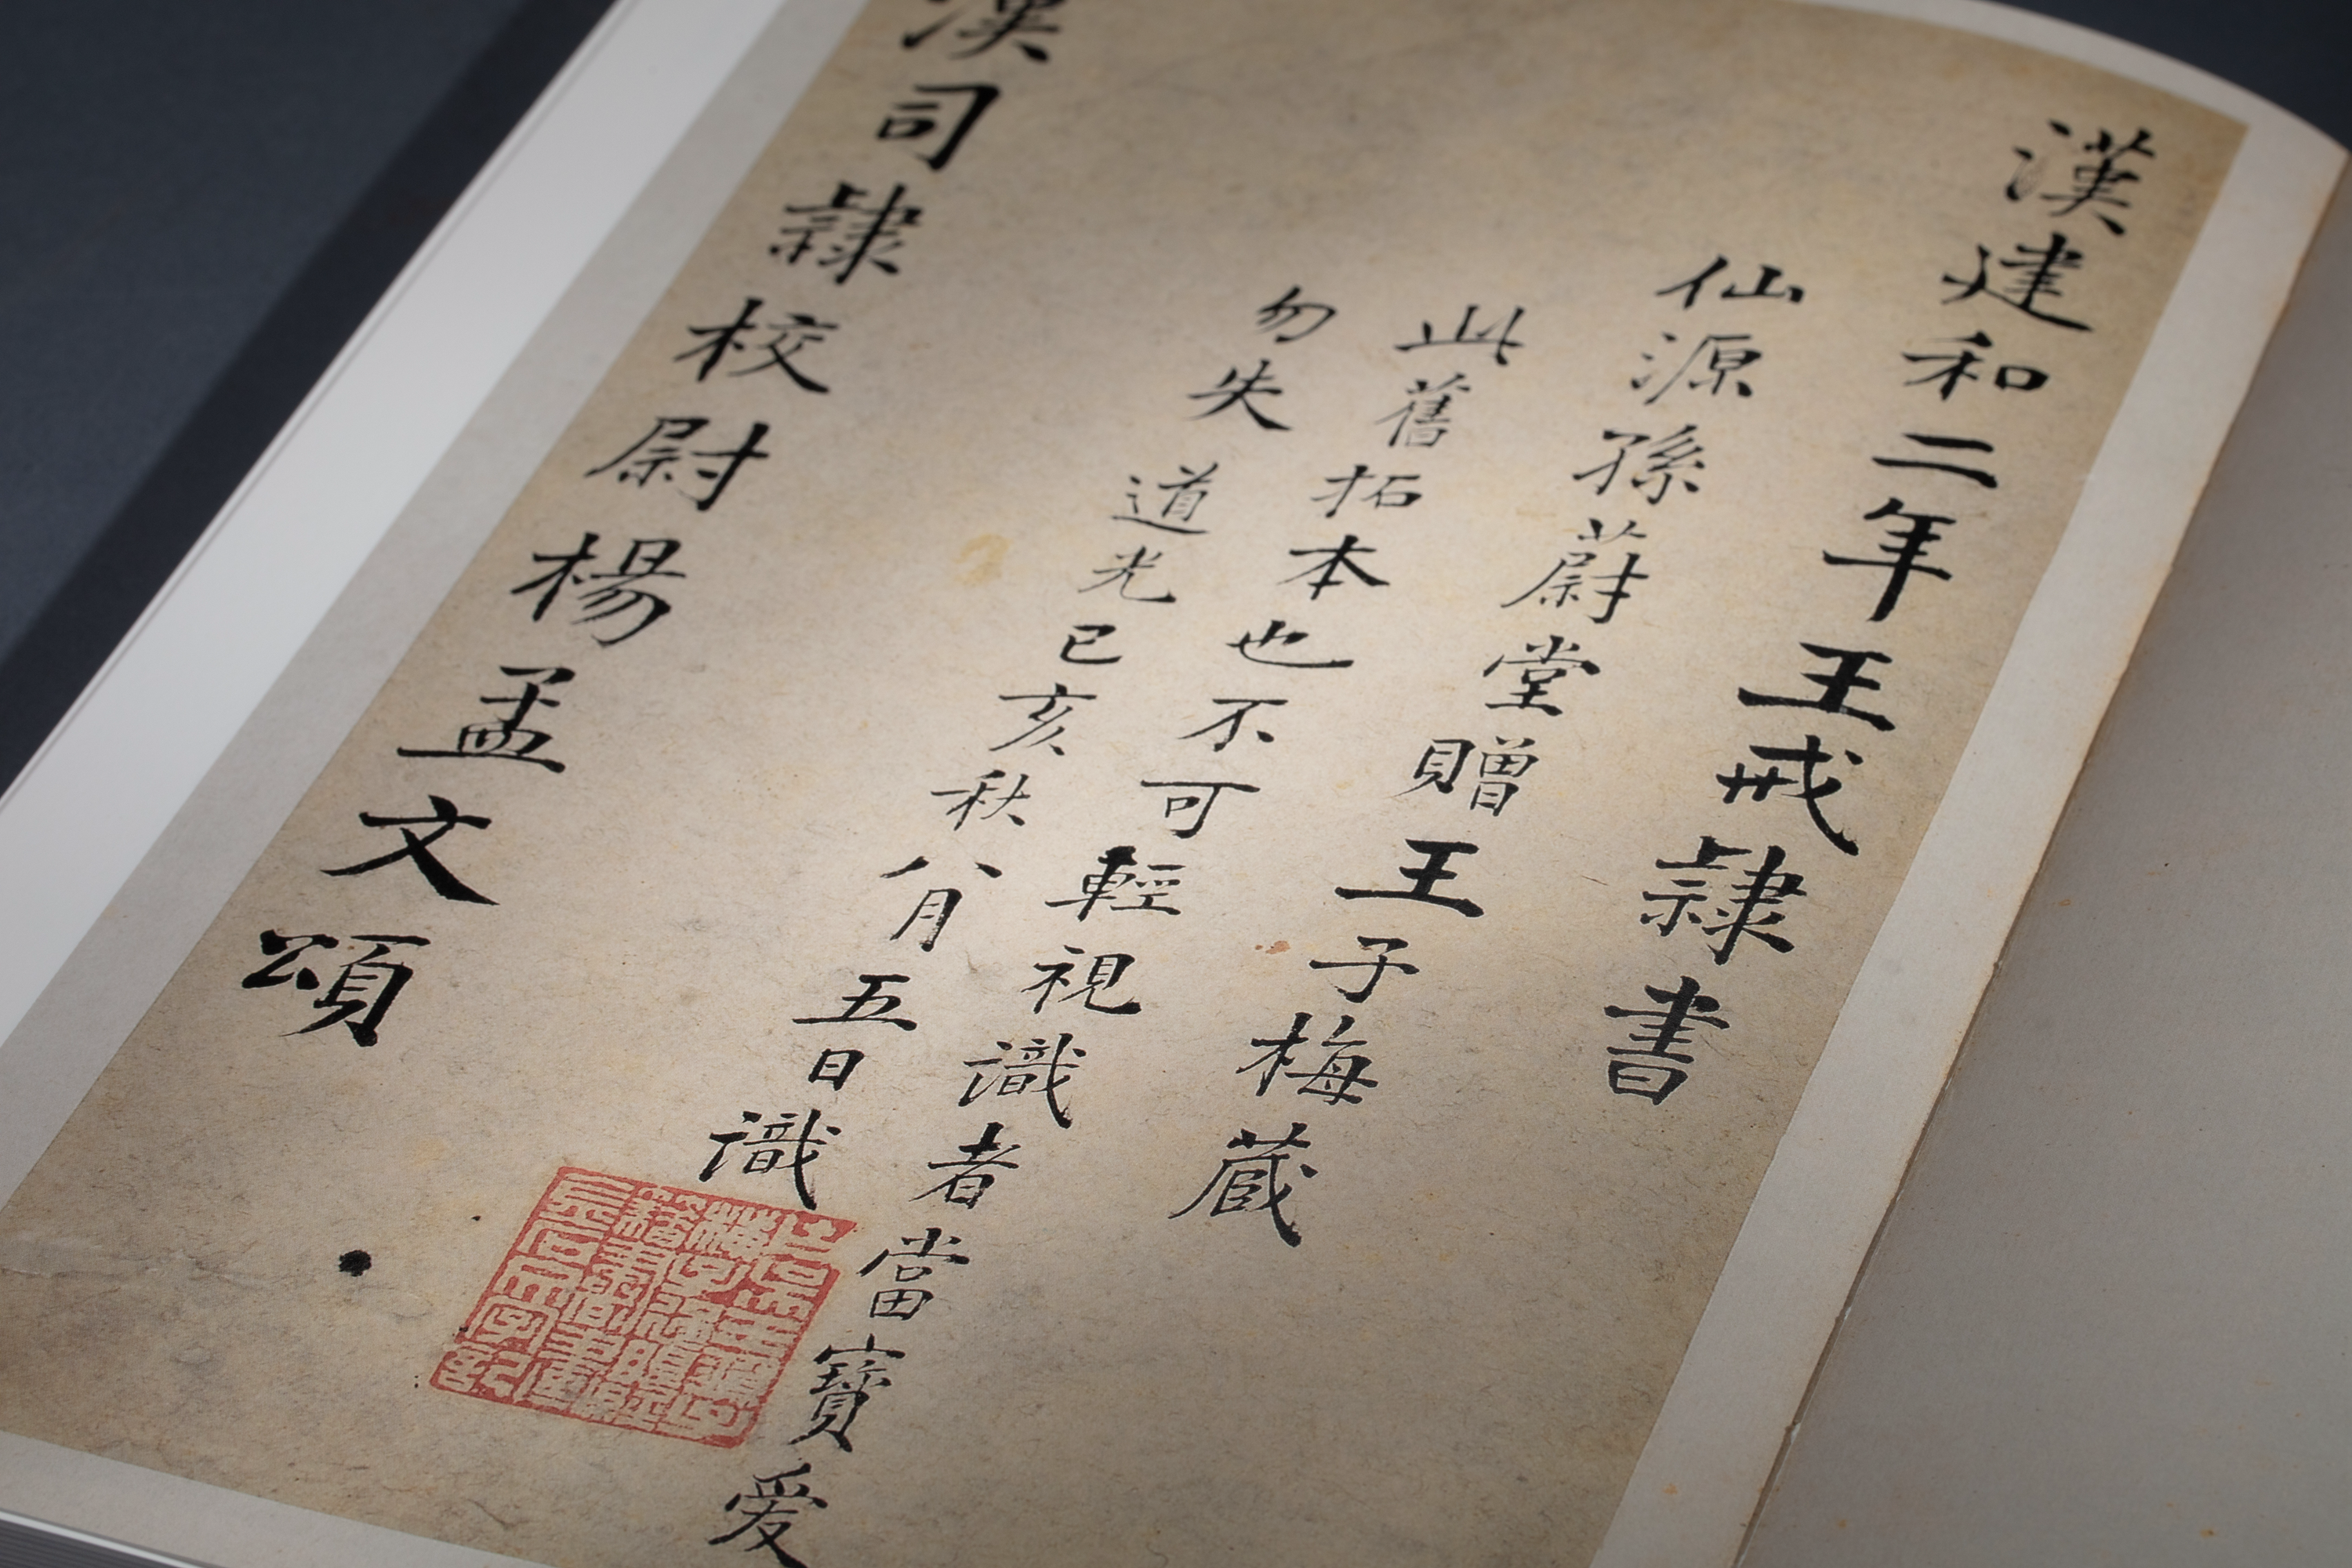 漢建和二年王戒隸書
仙源孫蔚堂贈王子梅藏
此舊拓本也不可輕視識者當寶愛
勿失 道光己亥秋八月五日識
漢司隸校尉楊孟文頌